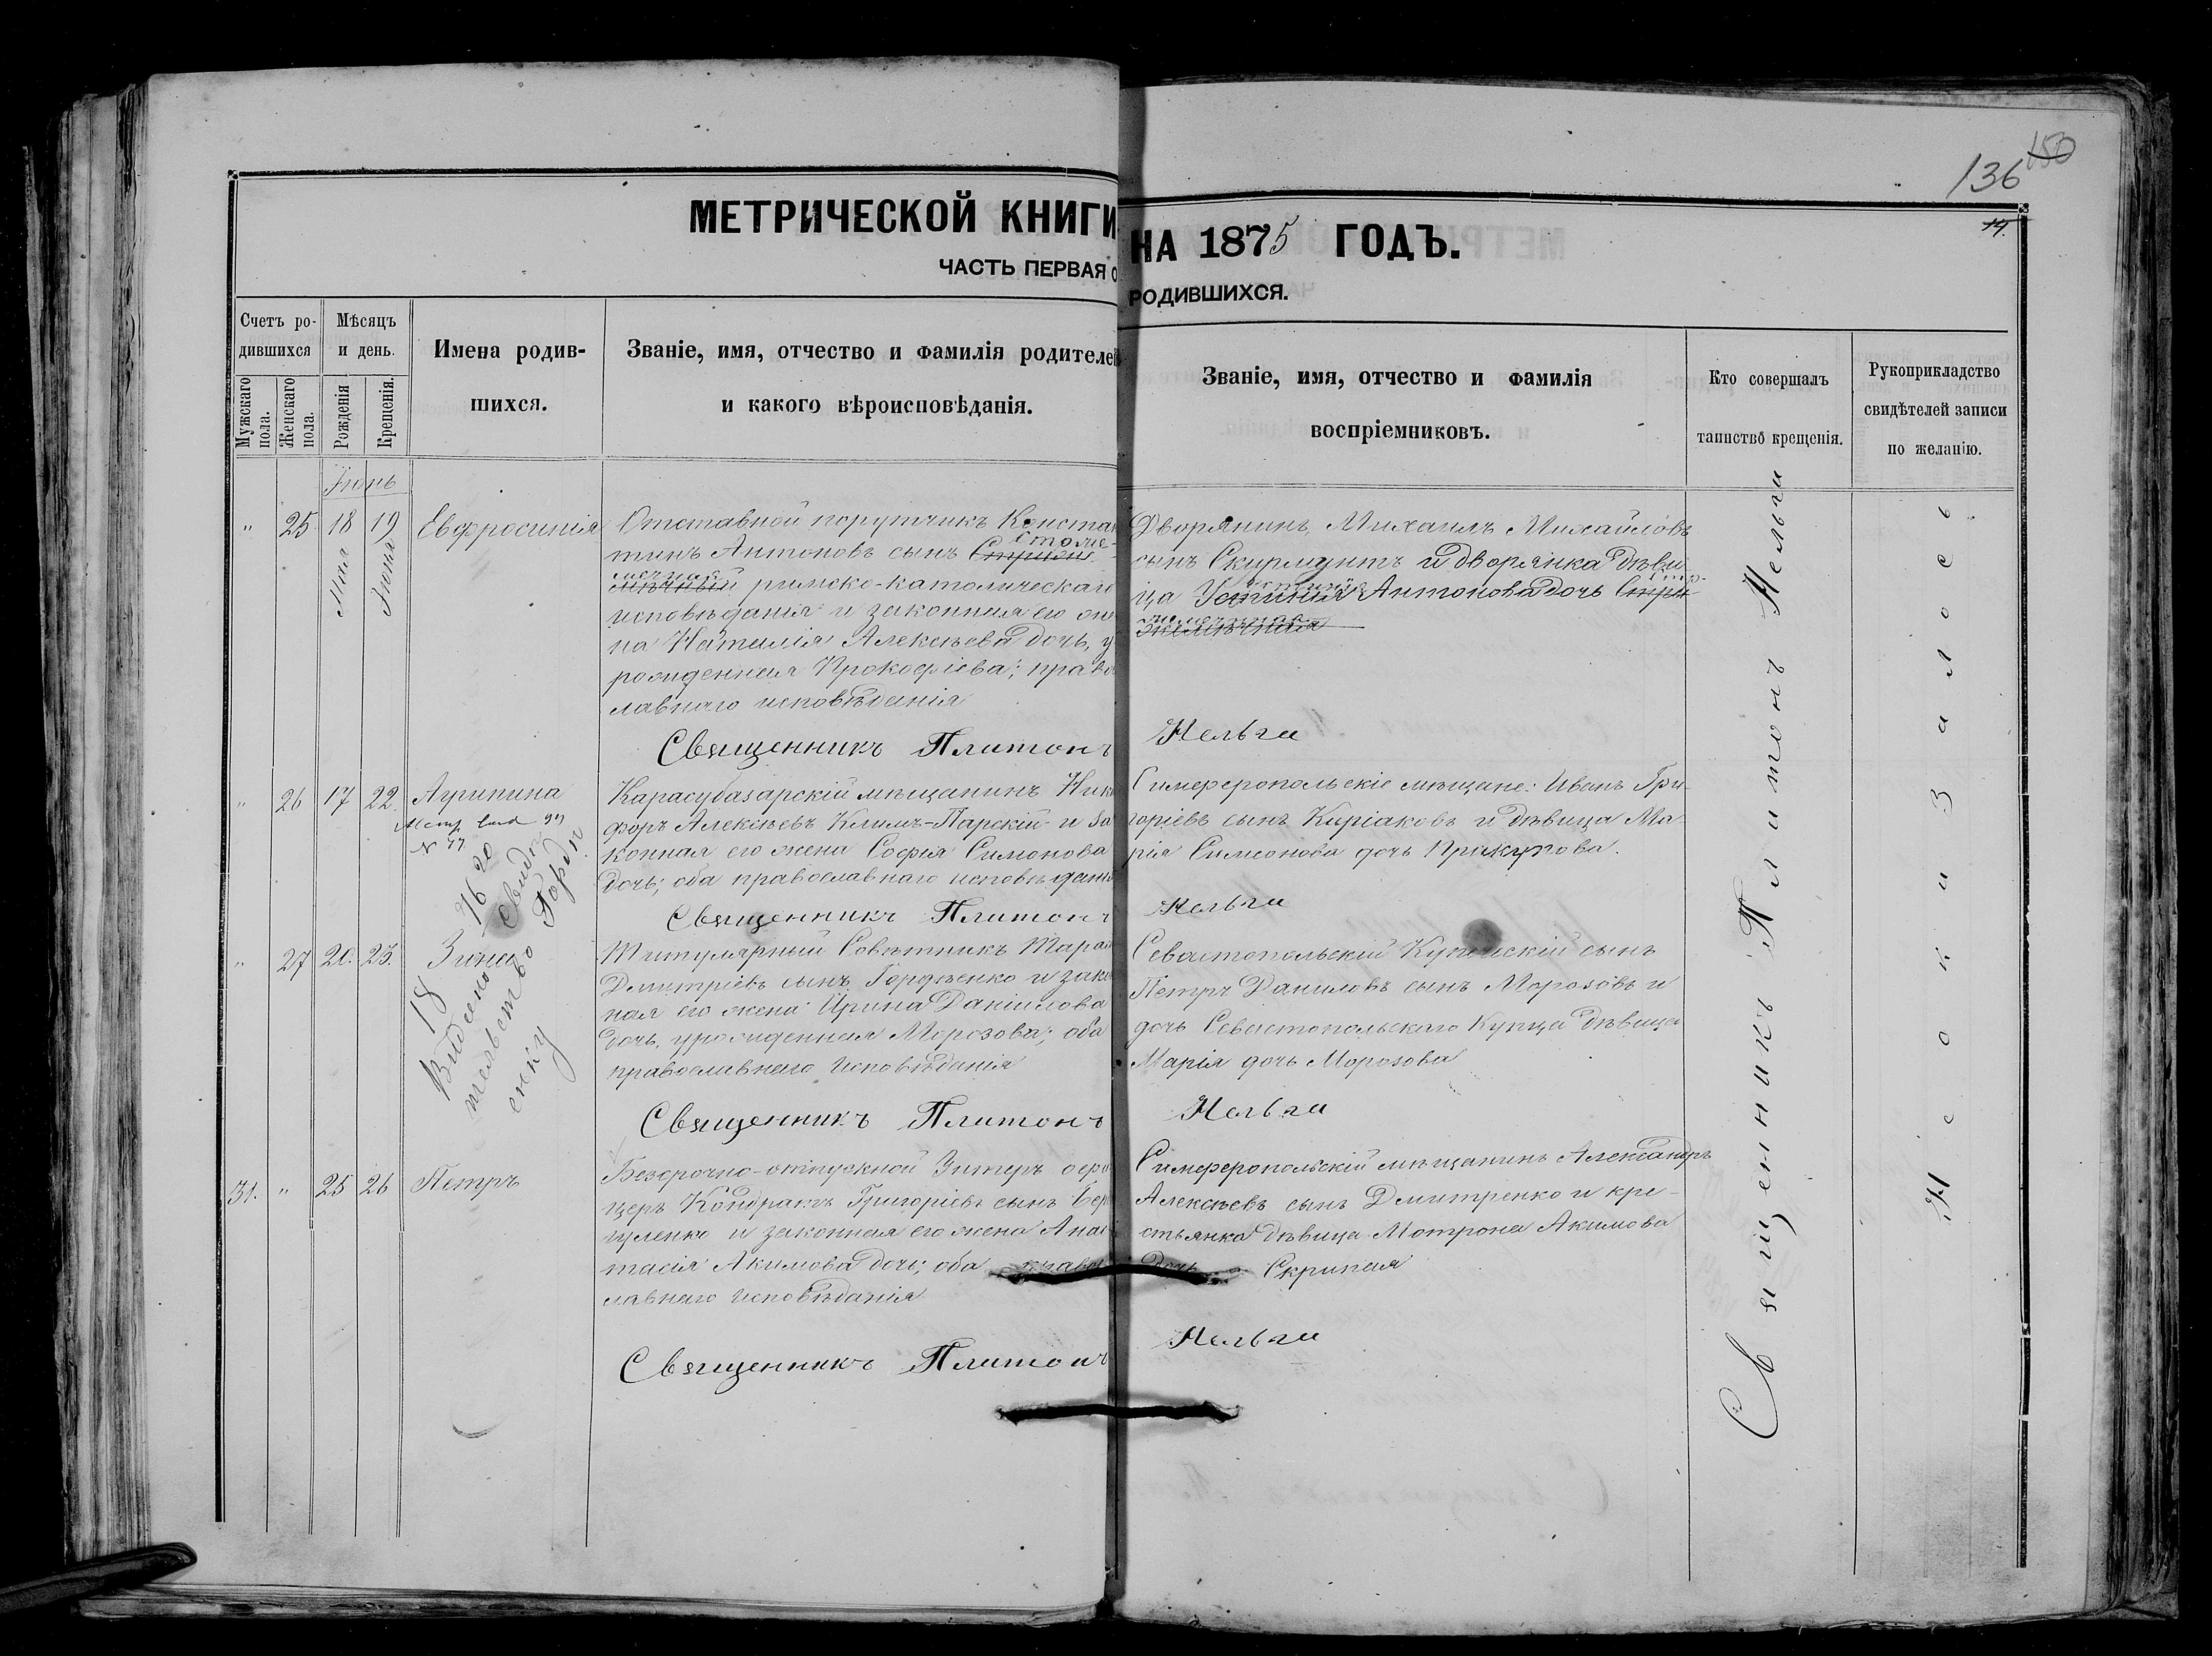 136 150
МЕТРИЧЕСКОЙ КНИГИ НА 1875 ГОДЪ.
14.
ЧАСТЬ ПЕРВАЯ О РОДИВШИХСЯ.
Счетъ ро-
дившихся
Мужскаго пола.
Женскаго пола.
Мѣсяцъ
и день.
Рожденія
Крещенія.
Имена родив-
шихся.
Званіе, имя, отчество и фамилія родителей
и какого вѣроисповѣданія.
Званіе, имя, отчество и фамилія
воспріемниковъ.
Кто совершалъ
таинство крещенія.
Рукоприкладство
свидѣтелей записи
по желанію.
Іюнь
" 25 18 19 Евфросинія
Мая Іюня
Отставной порутчикъ Констан
тинъ Антоновъ сынъ
римско-католическаго
исповѣданія и законная его
на Наталія Алексѣева дочь, у
рожденная Прокофіева; право
лавнаго исповѣданія
Священникъ Платонъ
Дворянинъ, Михаилъ Михайловъ
сынъ Скирмунтъ и дворянка дѣви
ца Устинія Антонова дочь
Нельга
" 26 17 22 Агрипина
N 77
Карасубазарскій мѣщанинъ Ники
форъ Алексѣевъ Климъ-Парскій и за
конная его жена Софія Симонова
дочь; оба православнаго исповѣдан
Священникъ Платонъ
Симферопольскіе мѣщане: Иванъ Гри-
горіевъ сынъ Киріаковъ и дѣвица Ма
рія Симеонова дочь
Нельга
" 27 20. 23. Зина
18 76 20
Видѣно свидѣ
тельство Гордѣ
енку
Титулярный Совѣтникъ Тара
Дмитріевъ сынъ Гордѣенко и зако
ная его жена Ирина Даніилова
дочь, урожденная Морозова; оба
православнаго исповѣданія
Священникъ Платонъ
Севастопольскій Купческій сынъ
Петръ Даниловъ сынъ Морозовъ и
дочь Севастопольскаго Купца дѣвица
Марія дочь Морозова
Нельга
31. " 25 26 Петръ
Безсрочно-отпускной Унтеръ офи
церъ Кондратъ Григоріевъ сынъ
и законная его жена Анас
тасія Акимова дочь; оба правос
лавнаго исповѣданія
Священникъ Платонъ
Симферопольскій мѣщанинъ Александръ
Алексѣевъ сынъ Дмитренко и кре-
стьянка дѣвица Мотрона Акимова
дочь Скрипая
Нельга
Священникъ Платонъ Нельга
Не оказалось